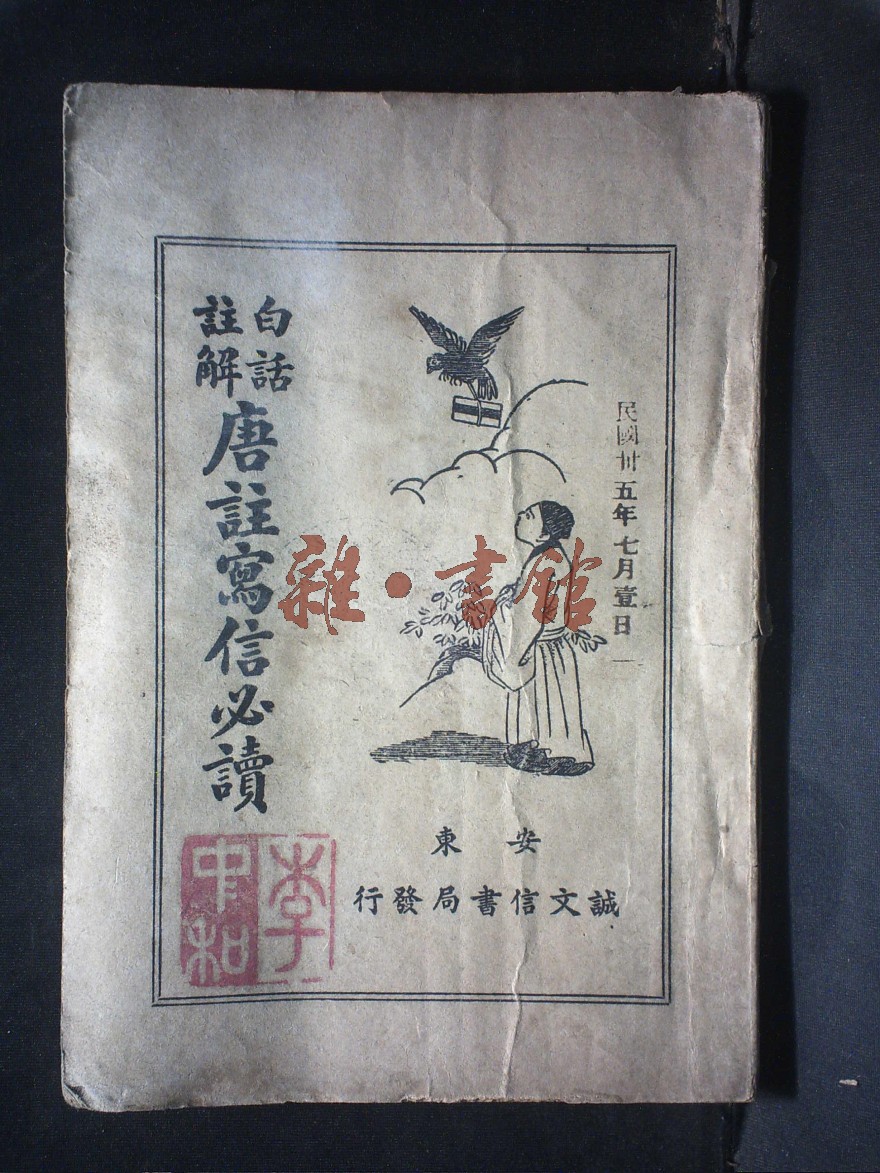 民國卅五年七月壹日
白話
註解
唐註寫信必讀
安東
誠文信書局發行
李中和
雜·書館